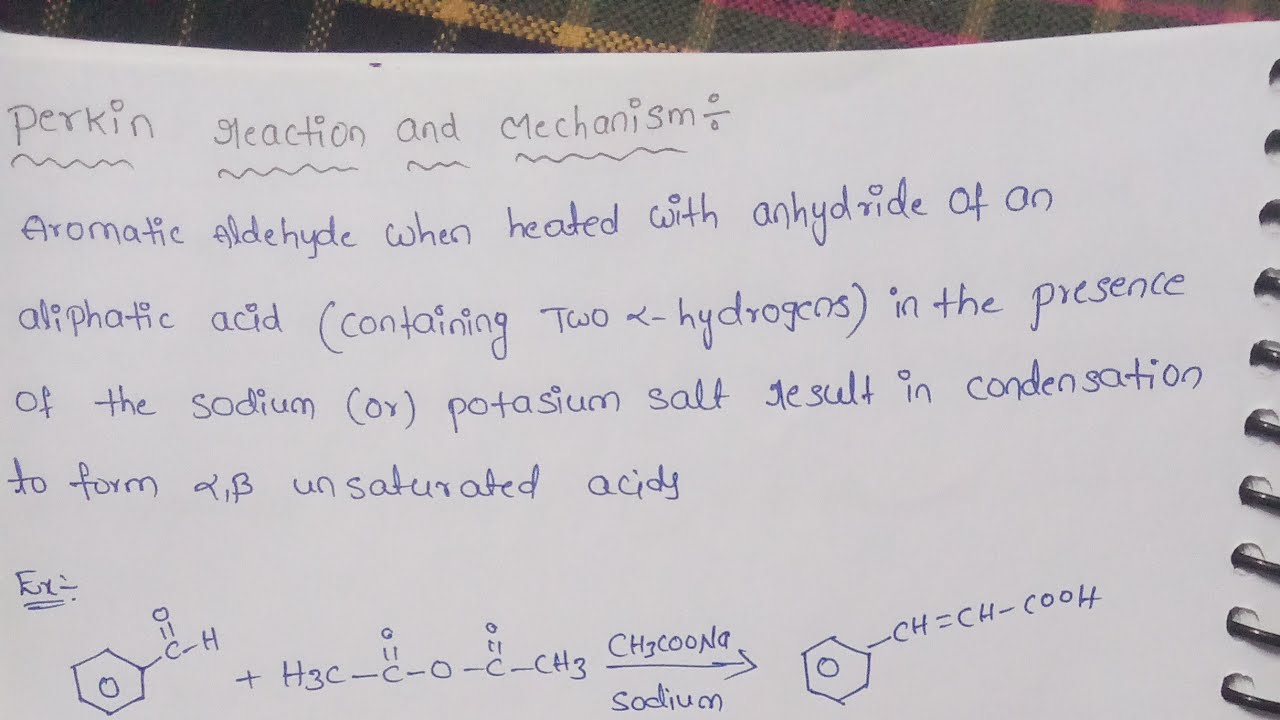 Perkin reaction and Mechanism÷
Aromatic Aldehyde when heated with anhydride of an
aliphatic acid (containing Two α-hydrogens) in the presence
of the sodium (or) potasium salt result in condensation
to form α,β unsaturated acids
Ex:-
O
C-H
+ H3C-C-O-C-CH3
O O
CH3COONa
sodium
CH=CH-COOH